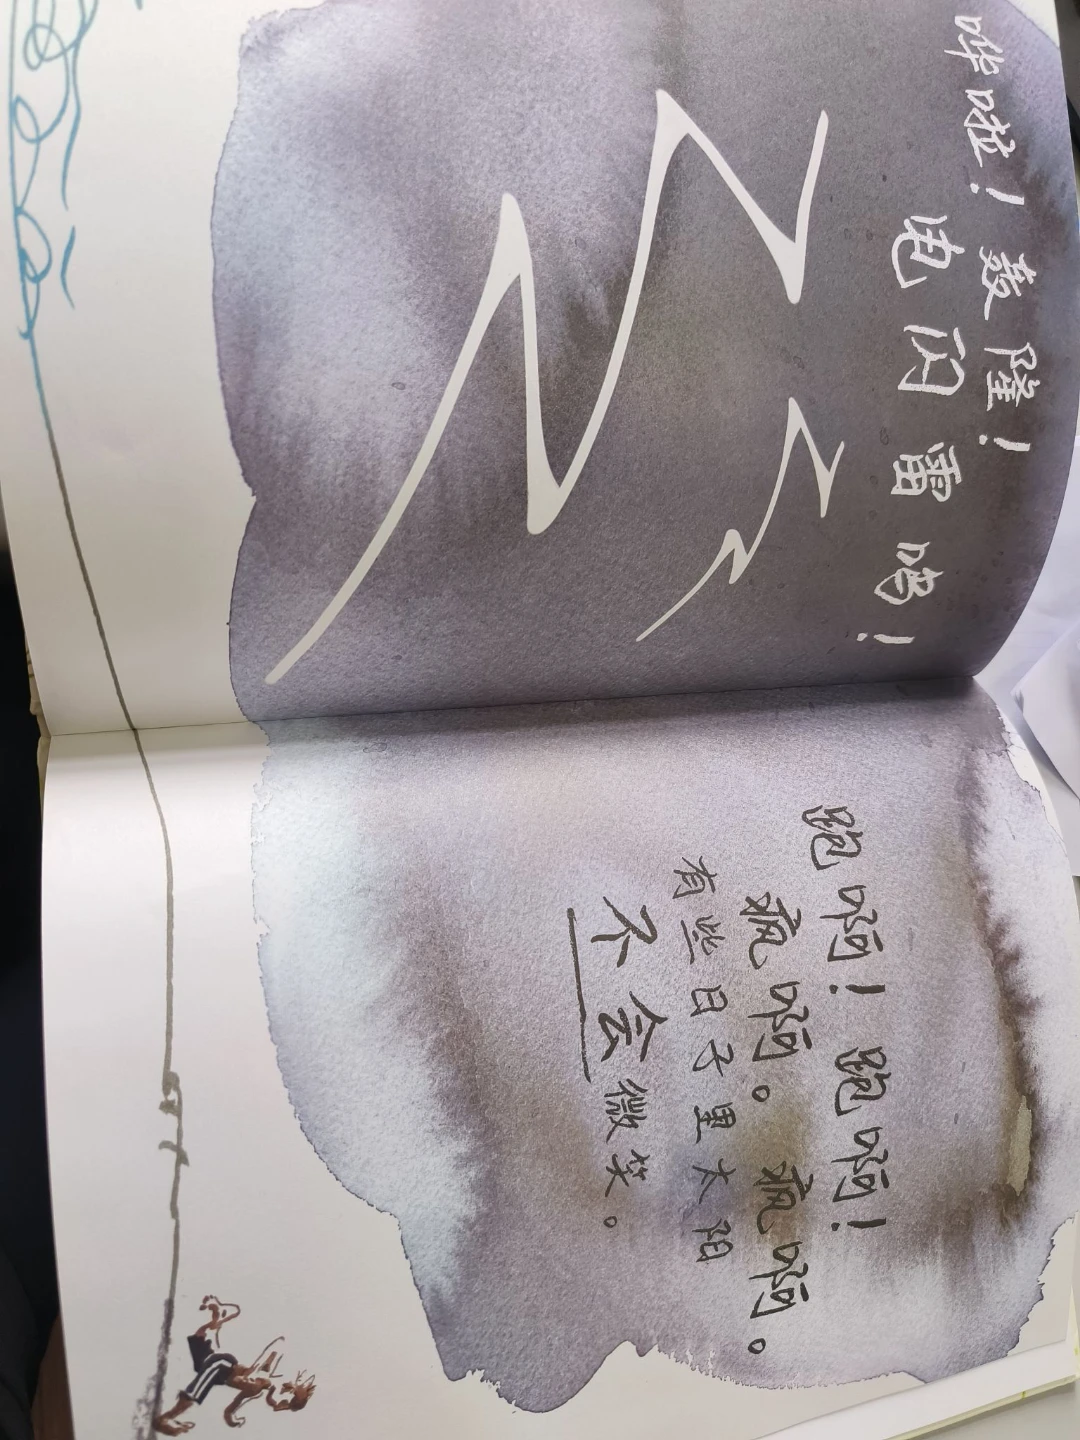 哗啦！轰隆！
电闪雷鸣！
跑啊！跑啊！
疯啊。疯啊。
有些日子里太阳
不会微笑。